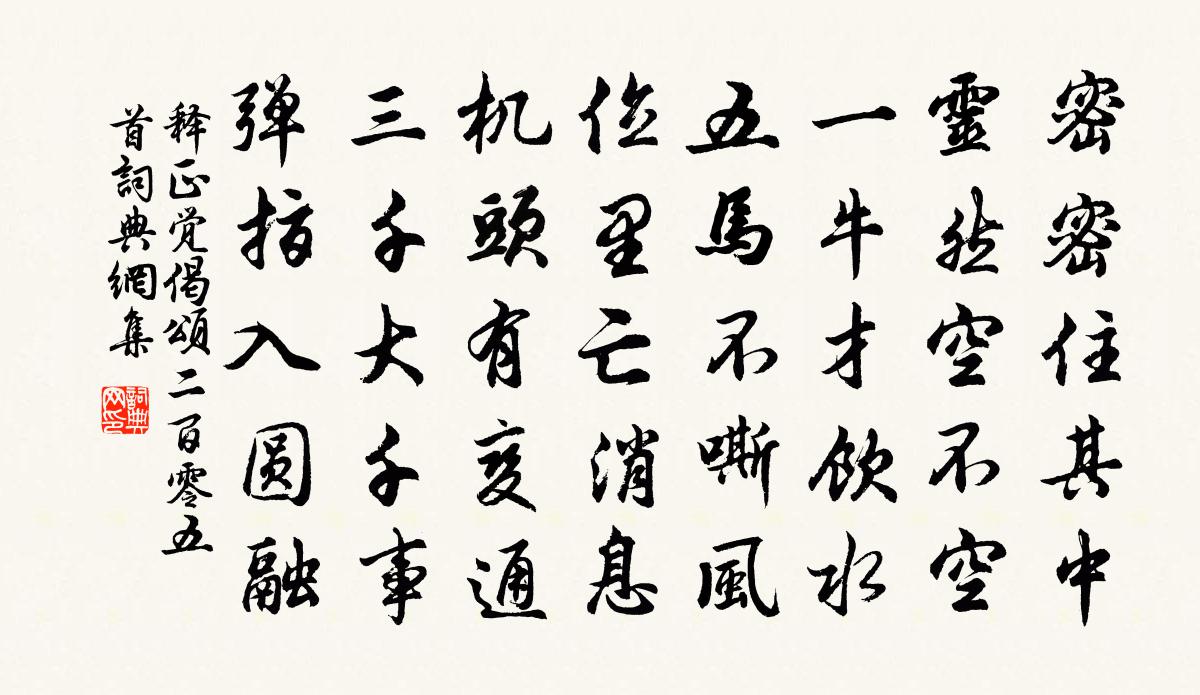 密密住其中
靈然空不空
一牛才飲水
五馬不嘶風
位里亡消息
机頭有变通
三千大千事
弹指入圆融
释正觉偈頌二百零五
首詞典網集
詞典网印